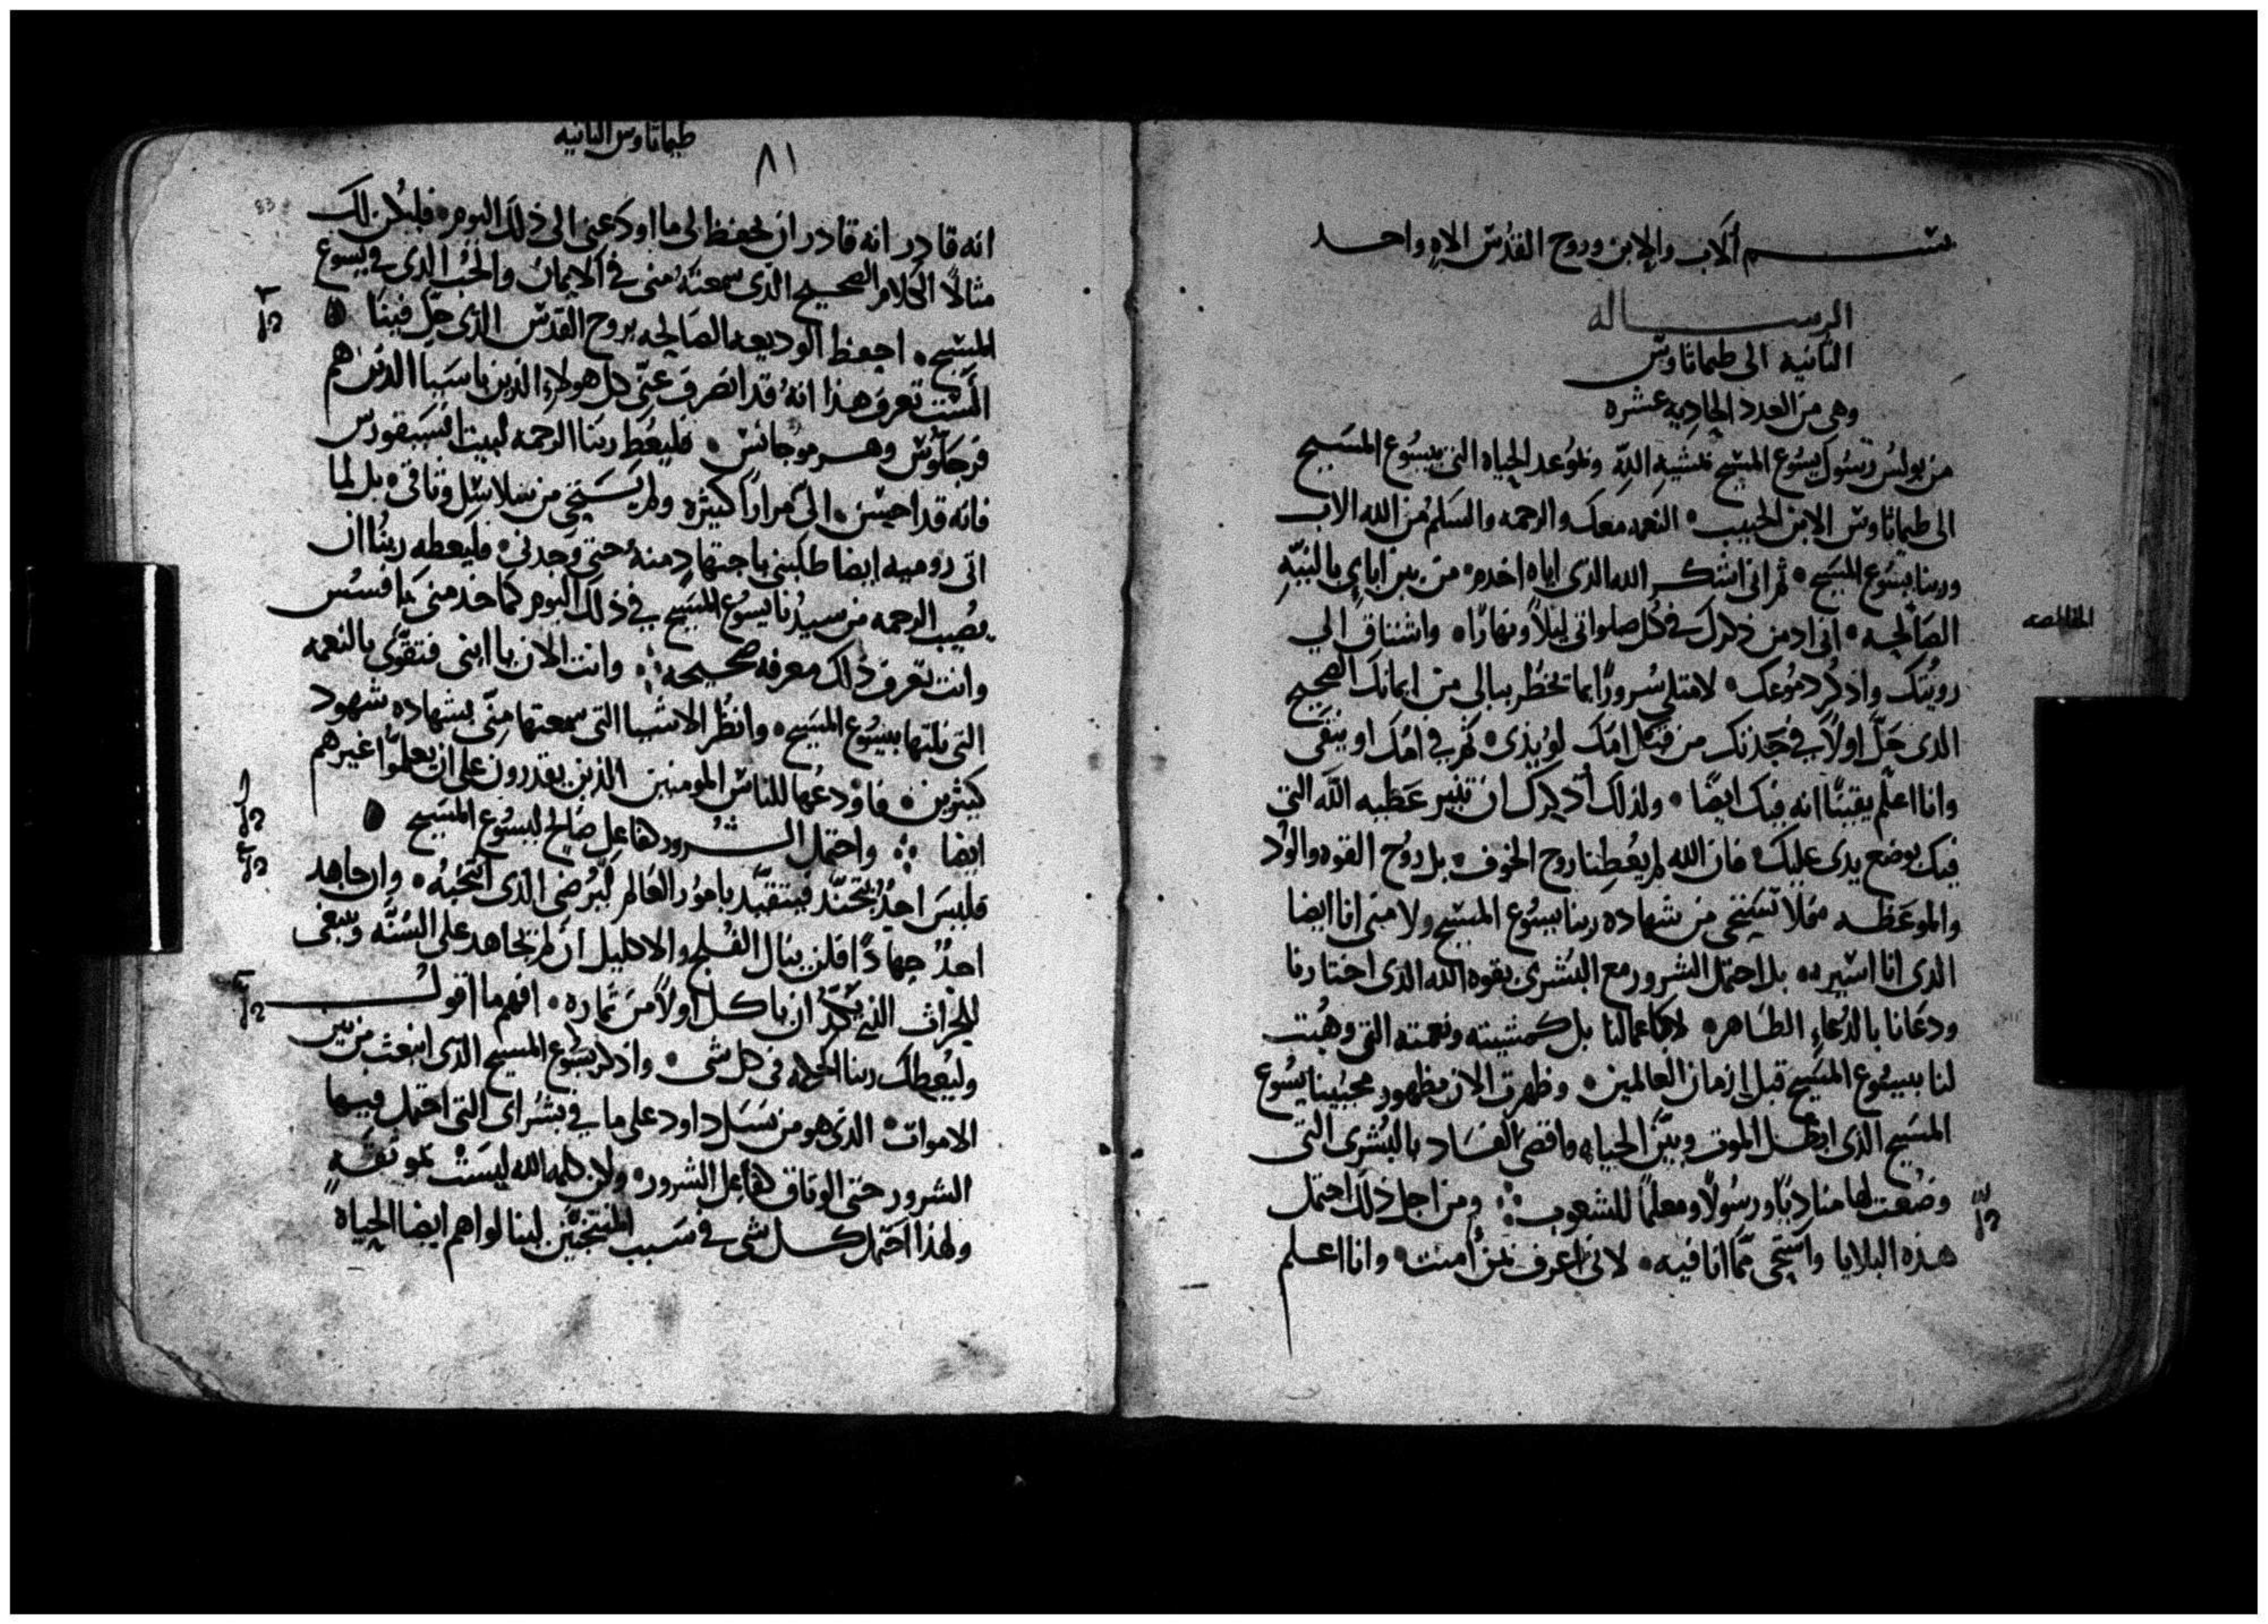 بســـم ألاب والابن وروح القدس الاه واحد
الرســـاله
الثانيه الى طيماتاوس
وهى من العدد الحاديه عشره
من بولس رسول يسوع المسيح بمشيه الله وبموعد الحياه التى بيسوع المسيح
الى طيماتاوس الابن الحبيب • النعمه معك والرحمه والسلم من الله الاب
وربنا يسوع المسيح • ثم انى اشكر الله الذى اياه اخدم • من بين اباي بالنيه
الصالحه • انى ادمن ذكرك فى كل صلواتى ليلاً ونهارًا • واشتاق الى
رويتك واذكر دموعك • لامتلى سرورًا بما يخطر ببالى من ايمانك الصحيح
الذى حَلّ اولاً فى جدتك من قبل امك لوئيذى • ثم فى امك اونيقى
وانا اعلم يقينًا انه فيك ايضًا • ولذلك أذكرك ان تثير عطيه الله التى
فيك بوضع يدى عليك • فان الله لم يعطنا روح الخوف • بل روح القوه والود
والموعظه • فلا تستحى من شهاده ربنا يسوع المسيح ولا منى انا ايضا
الذى انا اسيره • بل احتمل الشرور مع البشرى بقوه الله الذى اختارنا
ودعانا بالدعاء الطاهر • لا كاعمالنا بل كمشيته ونعمته التى وهبت
لنا بيسوع المسيح قبل ازمان العالمين • وظهرت الان بظهور محيينا يسوع
المسيح الذى ابطل الموت وبيّن الحياه واقصى الفساد بالبشرى التى
وضعت لها مناديًا ورسولاً ومعلمًا للشعوب ⁘ ومن اجل ذلك احتمل
هذه البلايا ولا استحى مما انا فيه • لانى اعرف بمن أمنت • وانا اعلم
طيماتاوس الثانيه
٨١
83
انه قادر انه قادر ان يحفظ لى ما اودعنى الى ذلك اليوم • فليكن لك
مثالاً الكلام الصحيح الذى سمعته منى فى الايمان والحب الذى فى يسوع
المسيح • احفظ الوديعه الصالحه بروح القدس الذى حل فينا
الست تعرف هذا انه قد انصرف عنى كل هولاء الذين باسيا الذين هم
فرجالوس وهرموجانس • فليعط ربنا الرحمه لبيت انسيفورس
فانه قد احيسن الىّ مرارًا كثيره ولم يستحى من سلاسل وثاقى • بل لما
اتى روميه ايضا طلبنى باجتهاد منه حتى وجدنى • فليعطه ربنا ان
يصيب الرحمه من سيدنا يسوع المسيح فى ذلك اليوم كما خدمنى بافسس
وانت تعرف ذلك معرفه صحيحه ⁘ وانت الان يا ابنى فتقوّى بالنعمه
التى نلتها بيسوع المسيح • وانظر الاشيا التى سمعتها منّى بشهاده شهود
كثيرين • فاودعها للناس المومنين الذين يقدرون على ان يعلموا غيرهم
ايضا ⁘ واحتمل الشرور كعامل صالح ليسوع المسيح
فليس احدٌ يتجند فيتقيّد بامور العالم ليرضى الذى انتخبه • وان جاهد
احدٌ جهادًا فلن ينال الفلج والاكليل ان لم يجاهد على السنّه وينبغى
للحراث الذى يكدّ ان ياكل اولاً من ثماره • افهم ما اقول
وليعطك ربنا الحكمه فى كل شى • واذكر يسوع المسيح الذى انبعث من بين
الاموات • الذى هو من نسل داود على ما فى بشراى التى احتمل فيها
الشرور حتى الوثاق كعامل الشرور • ولكن كلمه الله ليست بموثقه
ولهذا احتمل كل شى فى سبب المنتخبين لينالوا هم ايضا الحياه